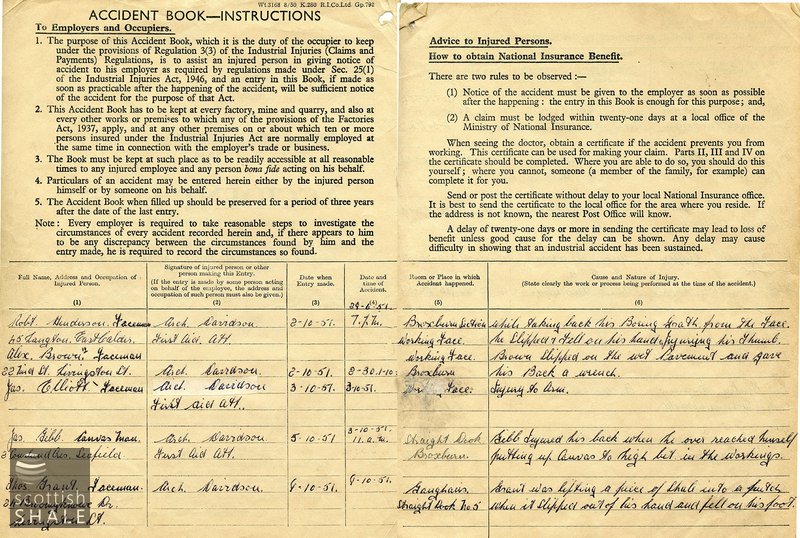 Wt.3168 8/50 K.250 R.I.Co.Ltd. Gp.792
ACCIDENT BOOK—INSTRUCTIONS
To Employers and Occupiers.
1. The purpose of this Accident Book, which it is the duty of the occupier to keep
under the provisions of Regulation 3(3) of the Industrial Injuries (Claims and
Payments) Regulations, is to assist an injured person in giving notice of
accident to his employer as required by regulations made under Sec. 25(1)
of the Industrial Injuries Act, 1946, and an entry in this Book, if made as
soon as practicable after the happening of the accident, will be sufficient notice
of the accident for the purpose of that Act.
2. This Accident Book has to be kept at every factory, mine and quarry, and also at
every other works or premises to which any of the provisions of the Factories
Act, 1937, apply, and at any other premises on or about which ten or more
persons insured under the Industrial Injuries Act are normally employed at
the same time in connection with the employer's trade or business.
3. The Book must be kept at such place as to be readily accessible at all reasonable
times to any injured employee and any person bona fide acting on his behalf.
4. Particulars of an accident may be entered herein either by the injured person
himself or by someone on his behalf.
5. The Accident Book when filled up should be preserved for a period of three years
after the date of the last entry.
Note : Every employer is required to take reasonable steps to investigate the
circumstances of every accident recorded herein and, if there appears to him
to be any discrepancy between the circumstances found by him and the
entry made, he is required to record the circumstances so found.
Full Name, Address and Occupation of
Injured Person.
(1)
Signature of injured person or other
person making this Entry.
(If the entry is made by some person acting
on behalf of the employee, the address and
occupation of such person must also be given.)
(2)
Date when
Entry made.
(3)
Date and
time of
Accident.
29-6-51.
Robt. Henderson. Faceman Arch. Davidson. 2-10-51.
45 Langton, East Calder. First Aid Att.
Alex. Brown. Faceman
Livingston St. Arch. Davidson. 2-10-51.
Jas. Elliott Faceman Arch. Davidson 3-10-51. 3-10-51.
First aid Att.
3-10-51.
Jas. Gibb. Canvas Man. Arch. Davidson 5-10-51 11.a.m.
Seafield First Aid Att.
Thos. Grant. Faceman. Arch. Davidson. 9-10-51. 9-10-51.
SCOTTISH
SHALE
Advice to Injured Persons.
How to obtain National Insurance Benefit.
There are two rules to be observed :—
(1) Notice of the accident must be given to the employer as soon as possible
after the happening : the entry in this Book is enough for this purpose; and,
(2) A claim must be lodged within twenty-one days at a local office of the
Ministry of National Insurance.
When seeing the doctor, obtain a certificate if the accident prevents you from
working. This certificate can be used for making your claim. Parts II, III and IV on
the certificate should be completed. Where you are able to do so, you should do this
yourself; where you cannot, someone (a member of the family, for example) can
complete it for you.
Send or post the certificate without delay to your local National Insurance office.
It is best to send the certificate to the local office for the area where you reside. If
the address is not known, the nearest Post Office will know.
A delay of twenty-one days or more in sending the certificate may lead to loss of
benefit unless good cause for the delay can be shown. Any delay may cause
difficulty in showing that an industrial accident has been sustained.
Room or Place in which
Accident happened.
(5)
Cause and Nature of Injury.
(State clearly the work or process being performed at the time of the accident.)
(6)
Broxburn Section while taking back his Boring Graith from the Face.
Working Face. he slipped & fell on his hand injuring his Thumb.
Working Face. Brown slipped on the wet Pavement and gave
Broxburn his Back a wrench.
Face. Injury to Arm.
Straight Dook Gibb injured his back when he over reached himself
Broxburn. putting up Canvas to high bit in the workings.
Grant was lifting a piece of Shale into a hutch
Straight Dook No 5 when it slipped out of his hand and fell on his foot.